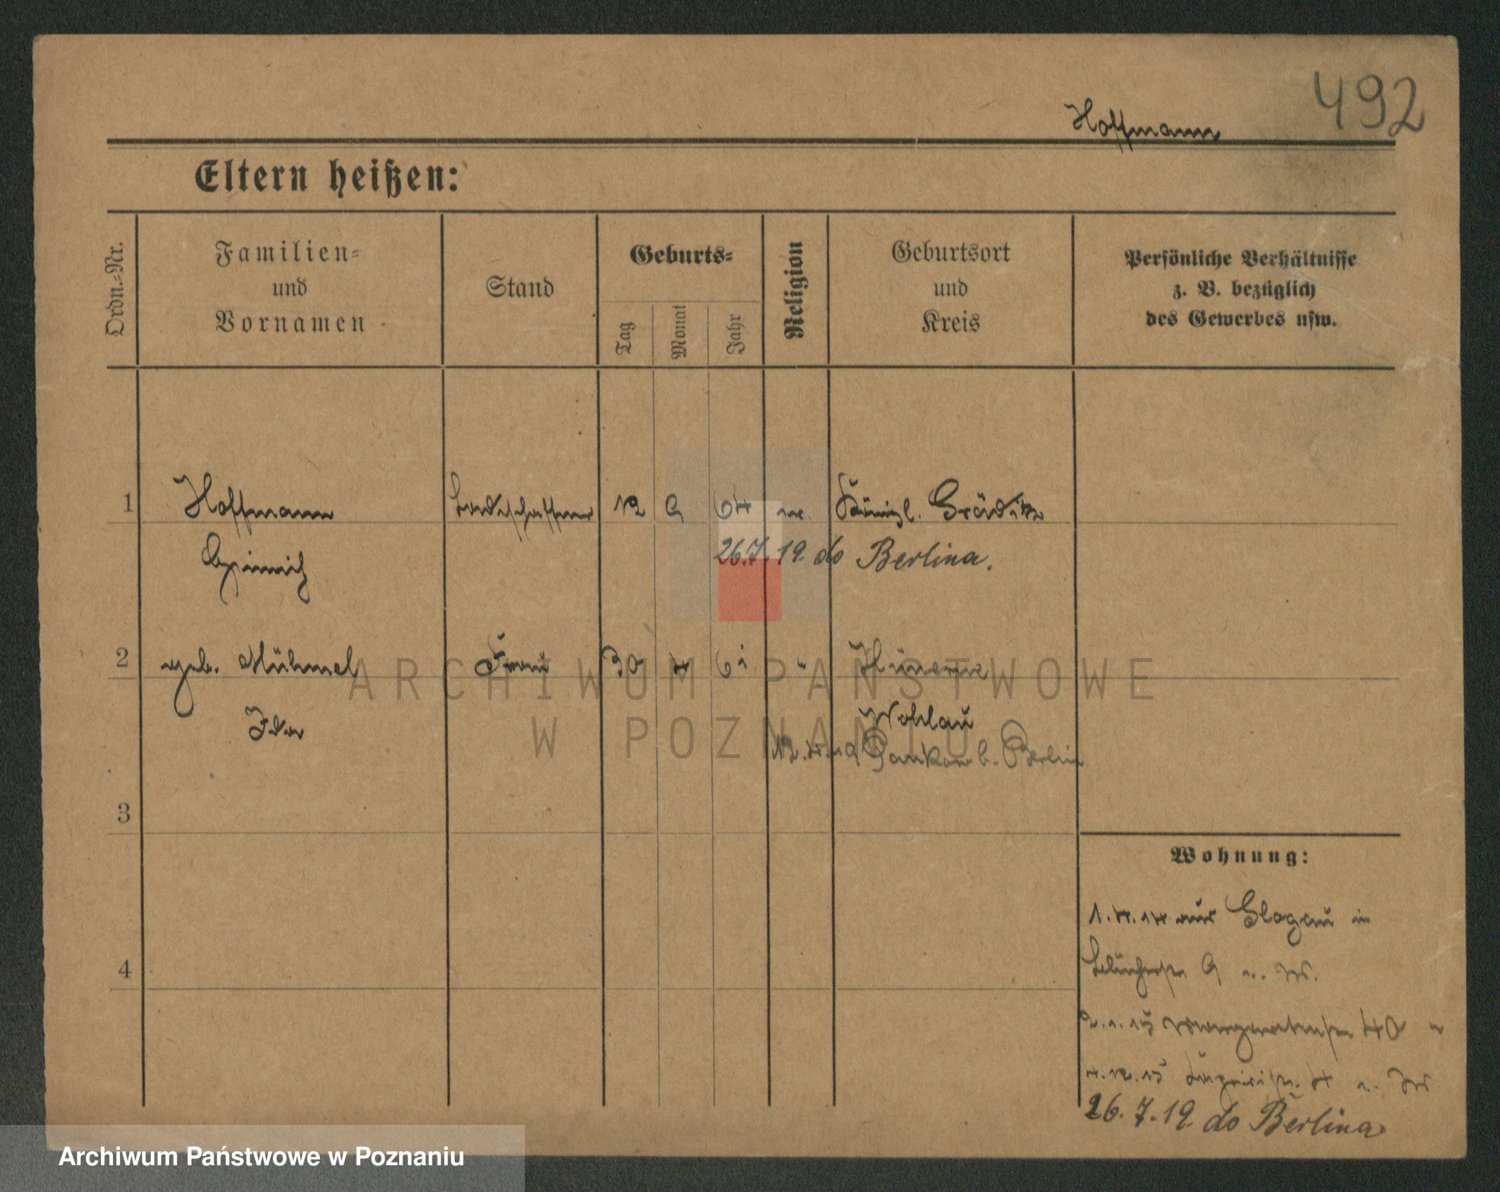 492
Hoffmann
Eltern heißen:
Ordn.-Nr.
Familien-
und
Vornamen
Stand
Geburts-
Tag
Monat
Jahr
Religion
Geburtsort
und
Kreis
Persönliche Verhältnisse
z. B. bezüglich
des Gewerbes usw.
1 Hoffmann 12 9 64 Königl. Gräditz
Heinrich
26.7.19. do Berlina.
2 geb. Mühmel Frau 30 4 61 "
Ida Wohlau
12.4.19 Pankow b. Berlin
3
4
Wohnung:
1.4.14 aus Glogau in
9
2.1.15 40
4.12.15 4
26.7.19. do Berlina
ARCHIWUM PAŃSTWOWE
W POZNANIU
Archiwum Państwowe w Poznaniu